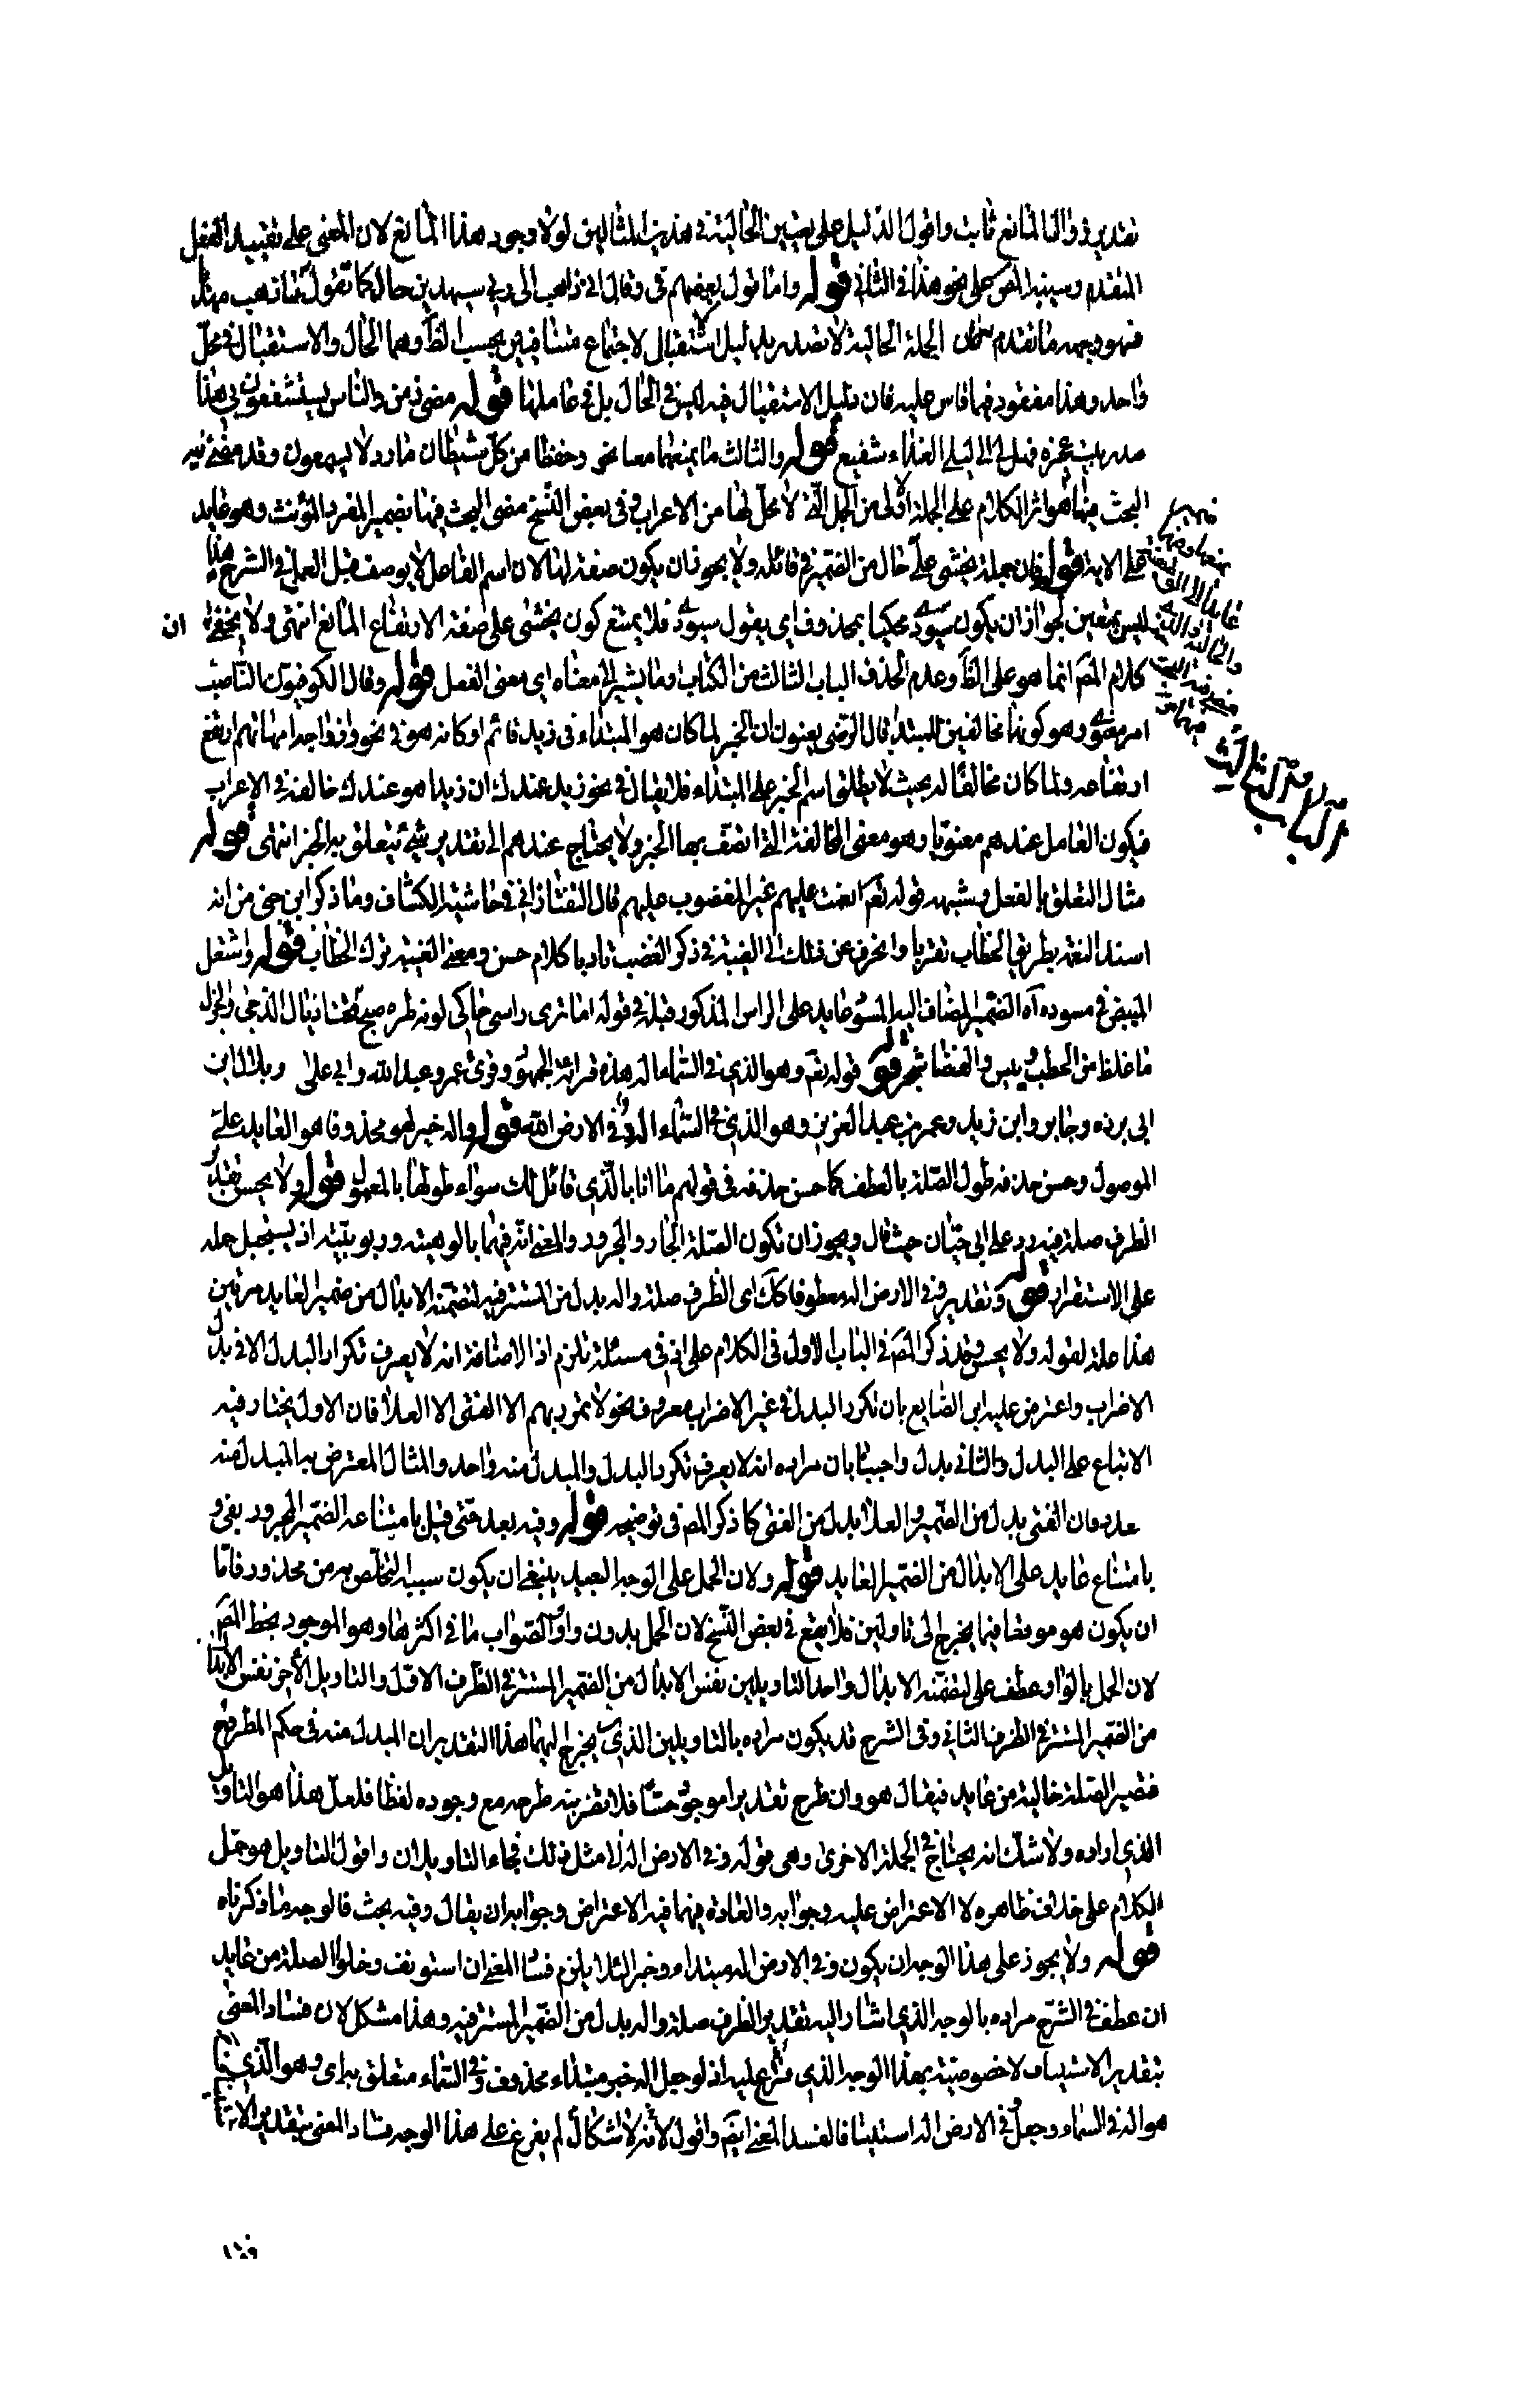 تقدير زوال المانع ثابت واقول الدليل على تعيين الحالية في هذين المثالين لولا وجود هذا المانع لان المعنى على تقييد الفعل
المتقدم وسينبه المص على نحو هذا في الثاني قوله واما قول بعضهم في وقال اني ذاهب الى ربي سيهدين حال كما تقول
فسهو وجهه ما تقدم الجملة الحالية لا تصدر بدليل استقبال لاجتماع متنافيين بحسب الظ وهما الحال والاستقبال في محل
واحد وهذا مفقود فيما قاس عليه فان دليل الاستقبال فيه ليس في الحال بل في عاملها قوله مضى زمن والناس يستشفعون بي هذا
صدر بيت عجزه فهل لي الى ليلى الغداة شفيع قوله والثالث ما يمنعهما معا نحو وحفظا من كل شيطان مارد لا يسمعون وقد مضى
البحث فيها هو اثر الكلام على الجملة الاولى من الجمل التي لا محل لها من الاعراب وفي بعض النسخ مضى البحث فيها بضمير المفرد المؤنث وهو عايد
على الاية قوله فان جملة يخشى علي حال من الضمير في قائله ولا يجوز ان يكون صفة لها لان اسم الفاعل لا يوصف قبل العمل في الشرح هذا
ليس بمتعين لجواز ان يكون محكيا بمحذوف اي يقول فلا يمتنع كون يخشى علي صفة لارتفاع المانع انتهى ولا يخفى ان
كلام المص انما هو على الظ وعدم الحذف الباب الثالث من الكتاب وما يشير الى معناه اي معنى الفعل قوله وقال الكوفيون الناصب
امر معنوي وهو كونهما مخالفين للمبتدا قال الرضي يعنون ان الخبر لما كان هو المبتداء في زيد قائم او كانه هو في نحو وازواجه امهاتهم ارتفع
ارتفاعه ولما كان مخالفا له بحيث لا يطلق اسم الخبر على المبتداء فلا يقال في نحو زيد عندك ان زيدا هو عندك خالفه في الاعراب
فيكون العامل عندهم معنويا وهو معنى المخالفة التي اتصف بها الخبر ولا يحتاج عندهم الى تقدير شيء يتعلق به الخبر انتهى قوله
مثال التعلق بالفعل وشبهه قوله تع انعمت عليهم غير المغضوب عليهم قال التفتازاني في حاشية الكشاف وما ذكر ابن جني من انه
اسند النعمة بطريق الخطاب تقربا وانحرف عن ذلك الى الغيبة في ذكر الغضب تادبا كلام حسن ومعنى الغيبة ترك الخطاب قوله واشتعل
المبيض في مسوده اه الضمير المضاف اليه المسود عايد على الراس المذكور قبله في قوله اما ترى راسي حاكى لونه طرة صبح تحت اذيال الدجى والجزل
ما غلظ من الحطب ويبس والغضا شجر قوله قوله تع وهو الذي في السماء اله هذه قراءة الجمهور وقرئ عمر وعبد الله وابي علي وبلال بن
ابي بردة وجابر وابن زيد وعمر بن عبد العزيز وهو الذي في السماء الله وفي الارض الله قوله واله خبر لهو محذوفا هو العايد على
الموصول وحسن حذفه طول الصلة بالعطف كما حسن حذفه في قولهم ما انا بالذي قائل لك سواء طولها بالمعمول قوله ولا يحسن تقدير
الظرف صلة فيه رد على ابي حيان حيث قال ويجوز ان تكون الصلة الجار والمجرور والمعنى انه فيهما بالوهيته وربوبيته اذ يستحيل حمله
على الاستقرار قوله وتقدير وفي الارض اله معطوفا كك اي الظرف صلة واله بدل من المستتر فيه لتضمنه الابدال من ضمير العايد مرتين
هذا علة لقوله ولا يحسن وقد ذكر المص في الباب الاول في الكلام على اذ في مسئلة تلزم اذ الاضافة انه لا يعرف تكرار البدل الا في بدل
الاضراب واعترض عليه ابن الصايغ بان تكرر البدل في غير الاضراب معروف نحو لا تمرر بهم الا الفتى الا العلا فان الاول يختار فيه
الاتباع على البدل والثاني بدل واجيب بان مراده انه لا يعرف تكرر البدل والمبدل منه واحد والمثال المعترض به المبدل منه
متعدد فان الفتى بدل من الضمير والعلا بدل من الفتى كما ذكر المص في توضيحه قوله وفيه بعد حتى قيل بامتناعه الضمير المجرور بفي و
بامتناع عايد على الابدال من الضمير العايد قوله ولان الحمل على الوجه البعيد ينبغي ان يكون سببه التخلص به من محذور فاما
ان يكون هو موقعا فيما يخرج الى تاولين فلا يقع في بعض النسخ لان الحمل بدون واو والصواب ما في اكثرها وهو الموجود بخط المص
لان الحمل بالواو عطف على لتضمنه الابدال واحد التاويلين نفس الابدال من الضمير المستتر في الظرف الاول والتاويل الاخر نفس الابدال
من الضمير المستتر في الظرف الثاني وفي الشرح قد يكون مراده بالتاويلين الذين يخرج اليهما هذا التقدير ان المبدل منه في حكم المطروح
فتصير الصلة خالية من عايد فيقال هو وان طرح تقديرا موجود حسا فلا تضر نية طرحه مع وجوده لفظا فلعل هذا هو التاويل
الذي اراده ولا شك انه يحتاج في الجملة الاخرى وهي قوله وفي الارض اله الى مثل ذلك فجاء التاويلان واقول التاويل هو حمل
الكلام على خلاف ظاهره لا الاعتراض عليه وجوابه والعادة فيما فيه الاعتراض وجوابه ان يقال وفيه بحث فالوجه ما ذكرناه
قوله ولا يجوز على هذا الوجه ان يكون وفي الارض اله مبتداء وخبر لئلا يلزم فساد المعنى ان استونف وخلو الصلة من عايد
ان عطف في الشرح مراده بالوجه الذي اشار اليه تقدير الظرف صلة واله بدل من الضمير المستتر فيه وهذا مشكل لان فساد المعنى
بتقدير الاستيناف لا خصوصية بهذا الوجه الذي فرع عليه اذ لو جعل اله خبر مبتداء محذوف وفي السماء متعلق به اي وهو الذي
هو اله في السماء وجعل في الارض اله استينافا لفسد المعنى ايض واقول لا اشكال لم يفرع على هذا الوجه فساد المعنى بتقدير
الباب الثالث